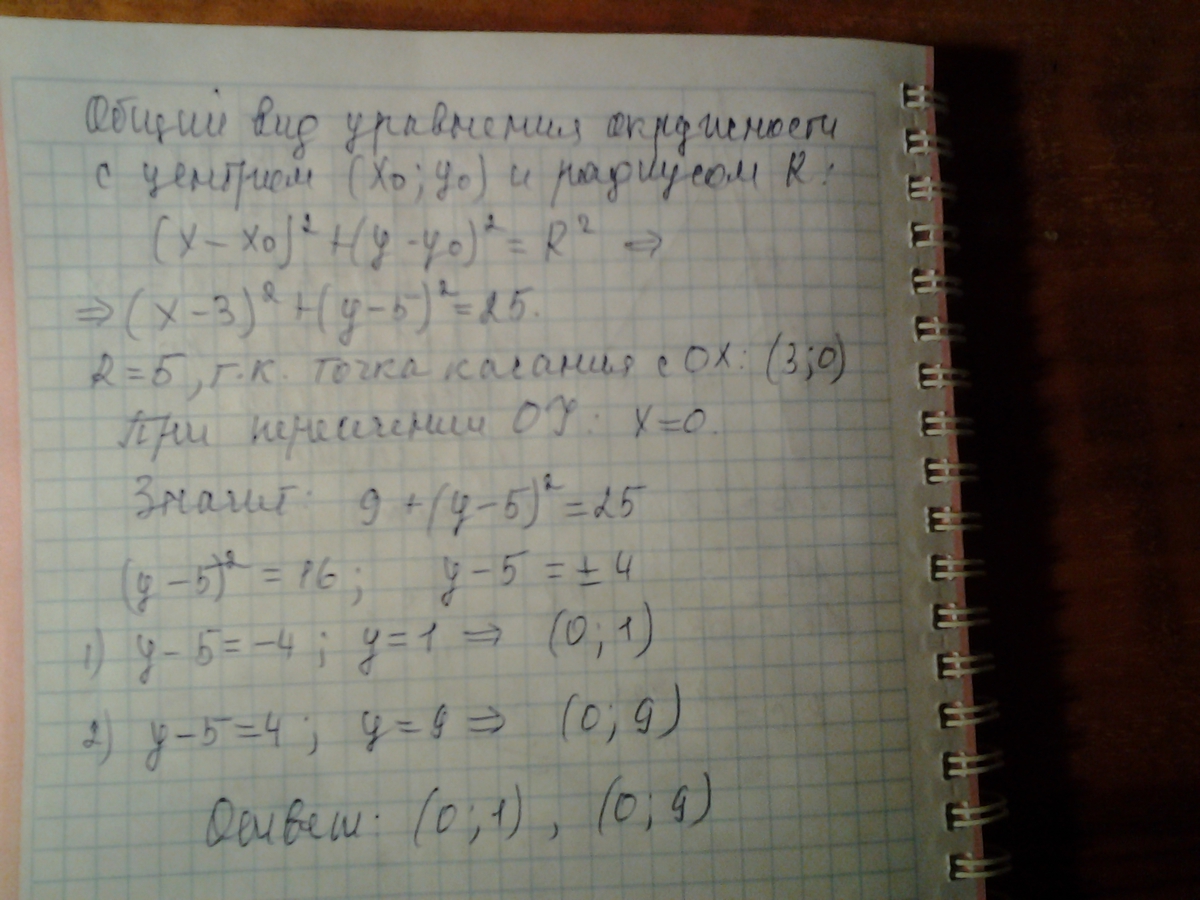 Общий вид уравнения окружности
с центром (x₀; y₀) и радиусом R:
(x - x₀)² + (y - y₀)² = R² ⇒
⇒ (x - 3)² + (y - 5)² = 25.
R = 5, т.к. точка касания с OX: (3; 0)
При пересечении OY: x = 0.
Значит: 9 + (y - 5)² = 25
(y - 5)² = 16; y - 5 = ± 4
1) y - 5 = -4; y = 1 ⇒ (0; 1)
2) y - 5 = 4; y = 9 ⇒ (0; 9)
Ответ: (0; 1), (0; 9)